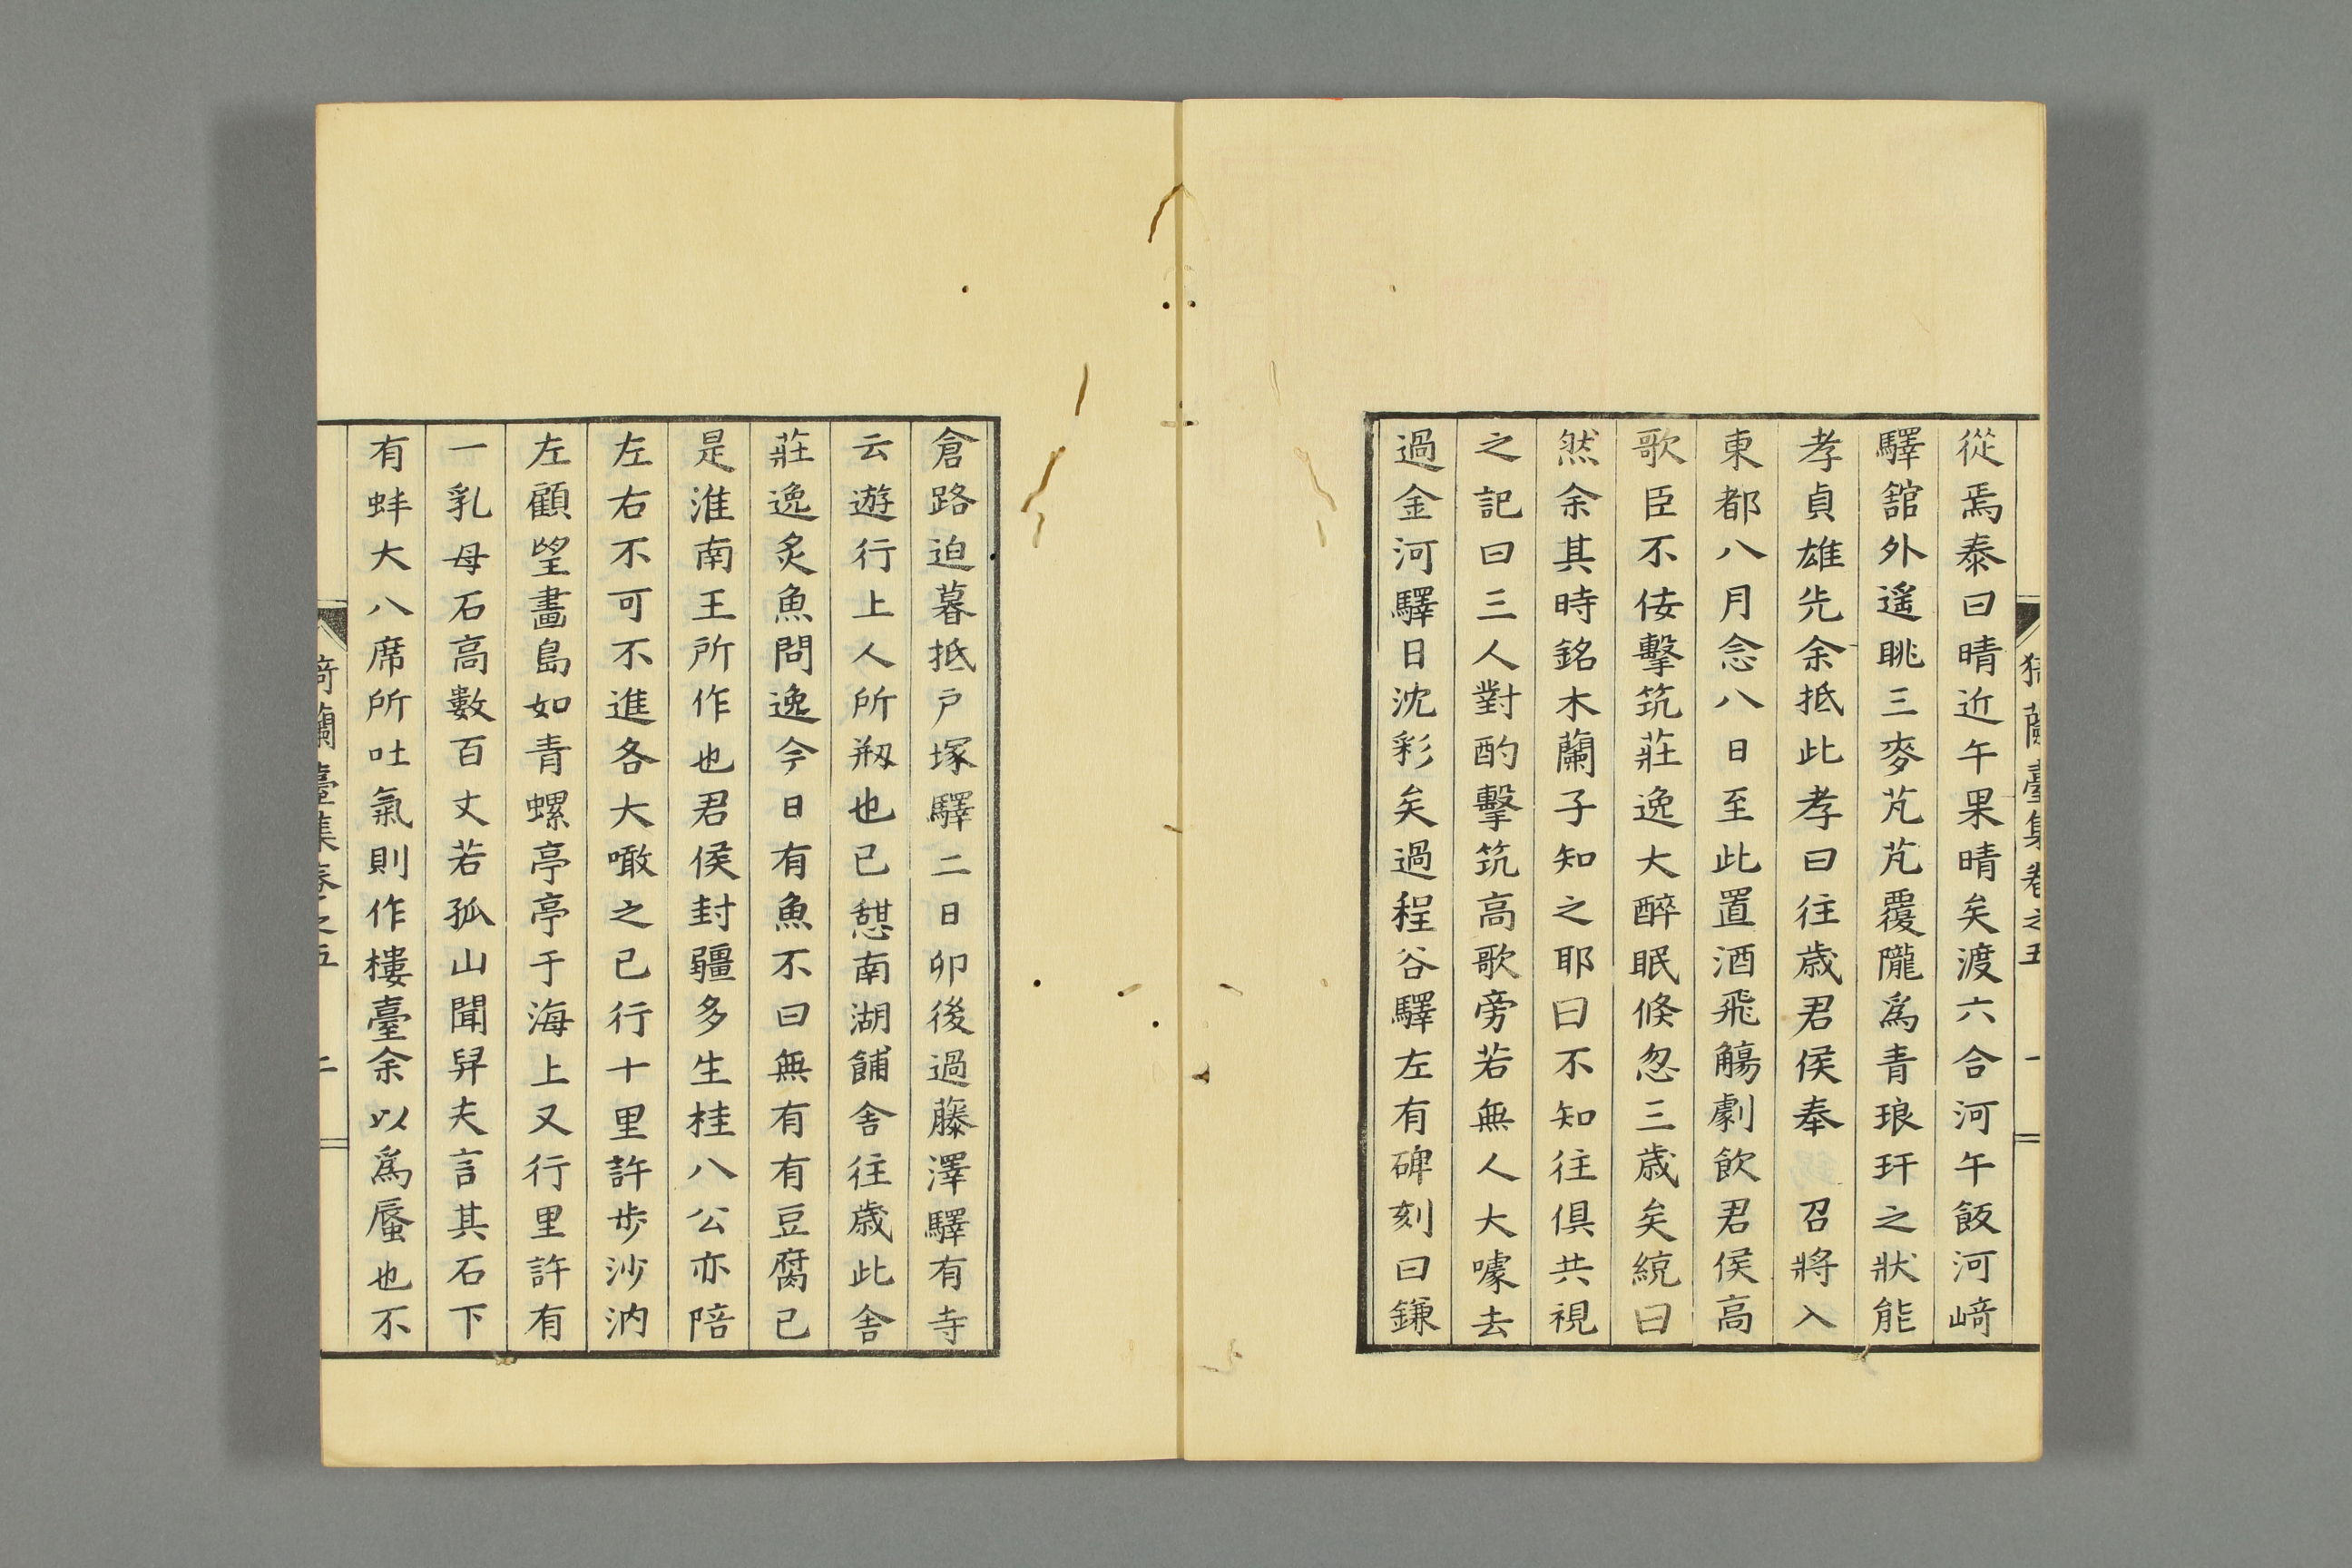 猗蘭臺集卷之五 一
從焉泰曰晴近午果晴矣渡六合河午飯河﨑
驛舘外遙眺三麥芃芃覆隴爲青琅玕之狀能
孝貞雄先余抵此孝曰往歳君侯奉 召將入
東都八月念八日至此置酒飛觴劇飲君侯高
歌臣不佞擊筑莊逸大醉眠倐忽三歳矣統曰
然余其時銘木蘭子知之耶曰不知往俱共視
之記曰三人對酌擊筑高歌旁若無人大噱去
過金河驛日沈彩矣過程谷驛左有碑刻曰鎌
倉路迫暮抵戸塚驛二日卯後過藤澤驛有寺
云遊行上人所剏也已憇南湖餔舍往歳此舍
莊逸炙魚問逸今日有魚不曰無有有豆腐已
是淮南王所作也君侯封疆多生桂八公亦陪
左右不可不進各大噉之已行十里許歩沙汭
左顧望畵島如青螺亭亭于海上又行里許有
一乳母石高數百丈若孤山聞舁夫言其石下
有蚌大八席所吐氣則作樓臺余以爲蜃也不
猗蘭臺集卷之五 二